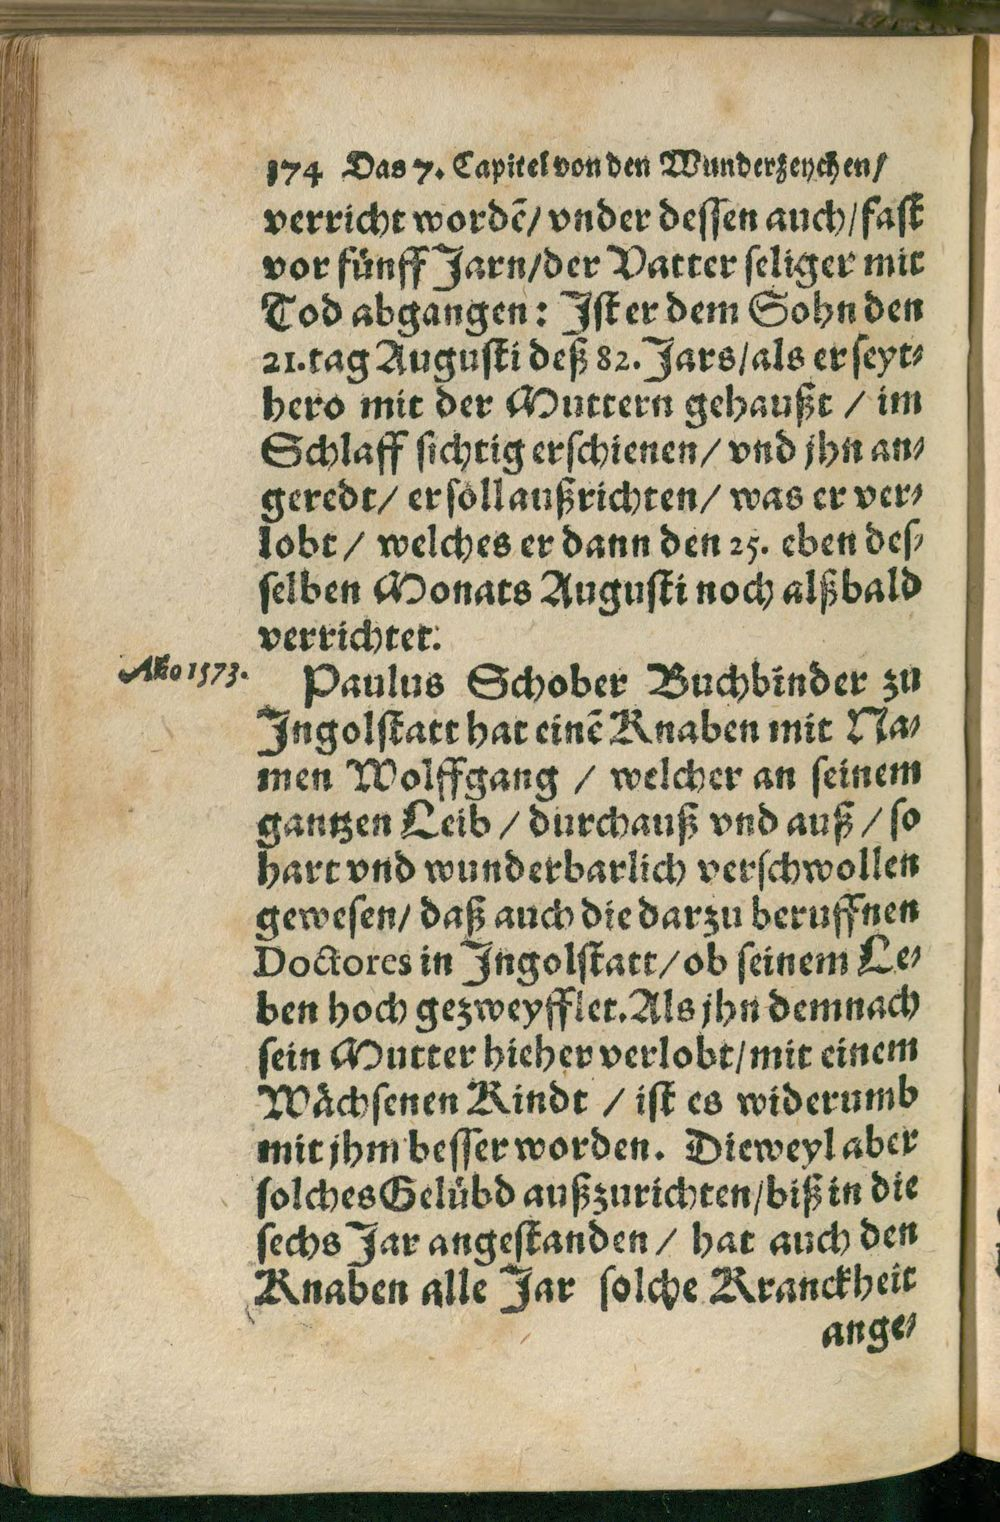 174 Das 7. Capitel von den Wunderzeychen/
verricht wordẽ/ vnder dessen auch/ fast
vor fünff Jarn/der Vatter seliger mit
Tod abgangen: Ist er dem Sohn den
21. tag Augusti deß 82. Jars/als er seyt-
hero mit der Muttern gehaußt / im
Schlaff sichtig erschienen/ vnd jhn an-
geredt/ er söll außrichten/ was er ver-
lobt / welches er dann den 25. eben des-
selben Monats Augusti noch alßbald
verrichtet.
Año 1573.
Paulus Schober Buchbinder zu
Ingolstatt hat einẽ Knaben mit Na-
men Wolffgang / welcher an seinem
gantzen Leib / durchauß vnd auß / so
hart vnd wunderbarlich verschwollen
gewesen/ daß auch die darzu beruffnen
Doctores in Ingolstatt/ ob seinem Le-
ben hoch gezweyfflet. Als jhn demnach
sein Mutter hieher verlobt/mit einem
Wächsenen Kindt / ist es widerumb
mit jhm besser worden. Dieweyl aber
solches Gelübd außzurichten/biß in die
sechs Jar angestanden / hat auch den
Knaben alle Jar solche Kranckheit
ange-